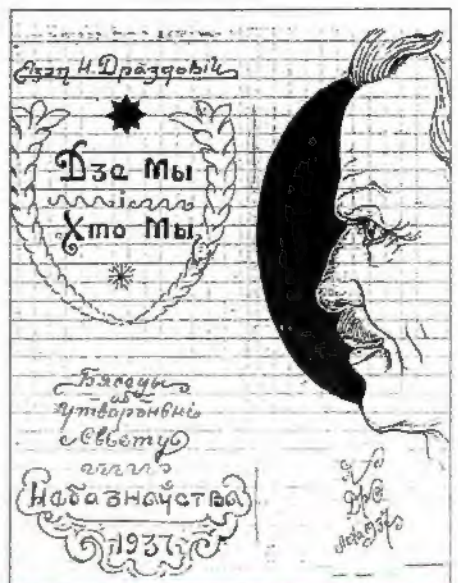 Язэп Н. Драздовіч
Дзе Мы
і
Хто Мы
Бяседы
аб
утварэньні
Сьвету
Небазнаўства
1937